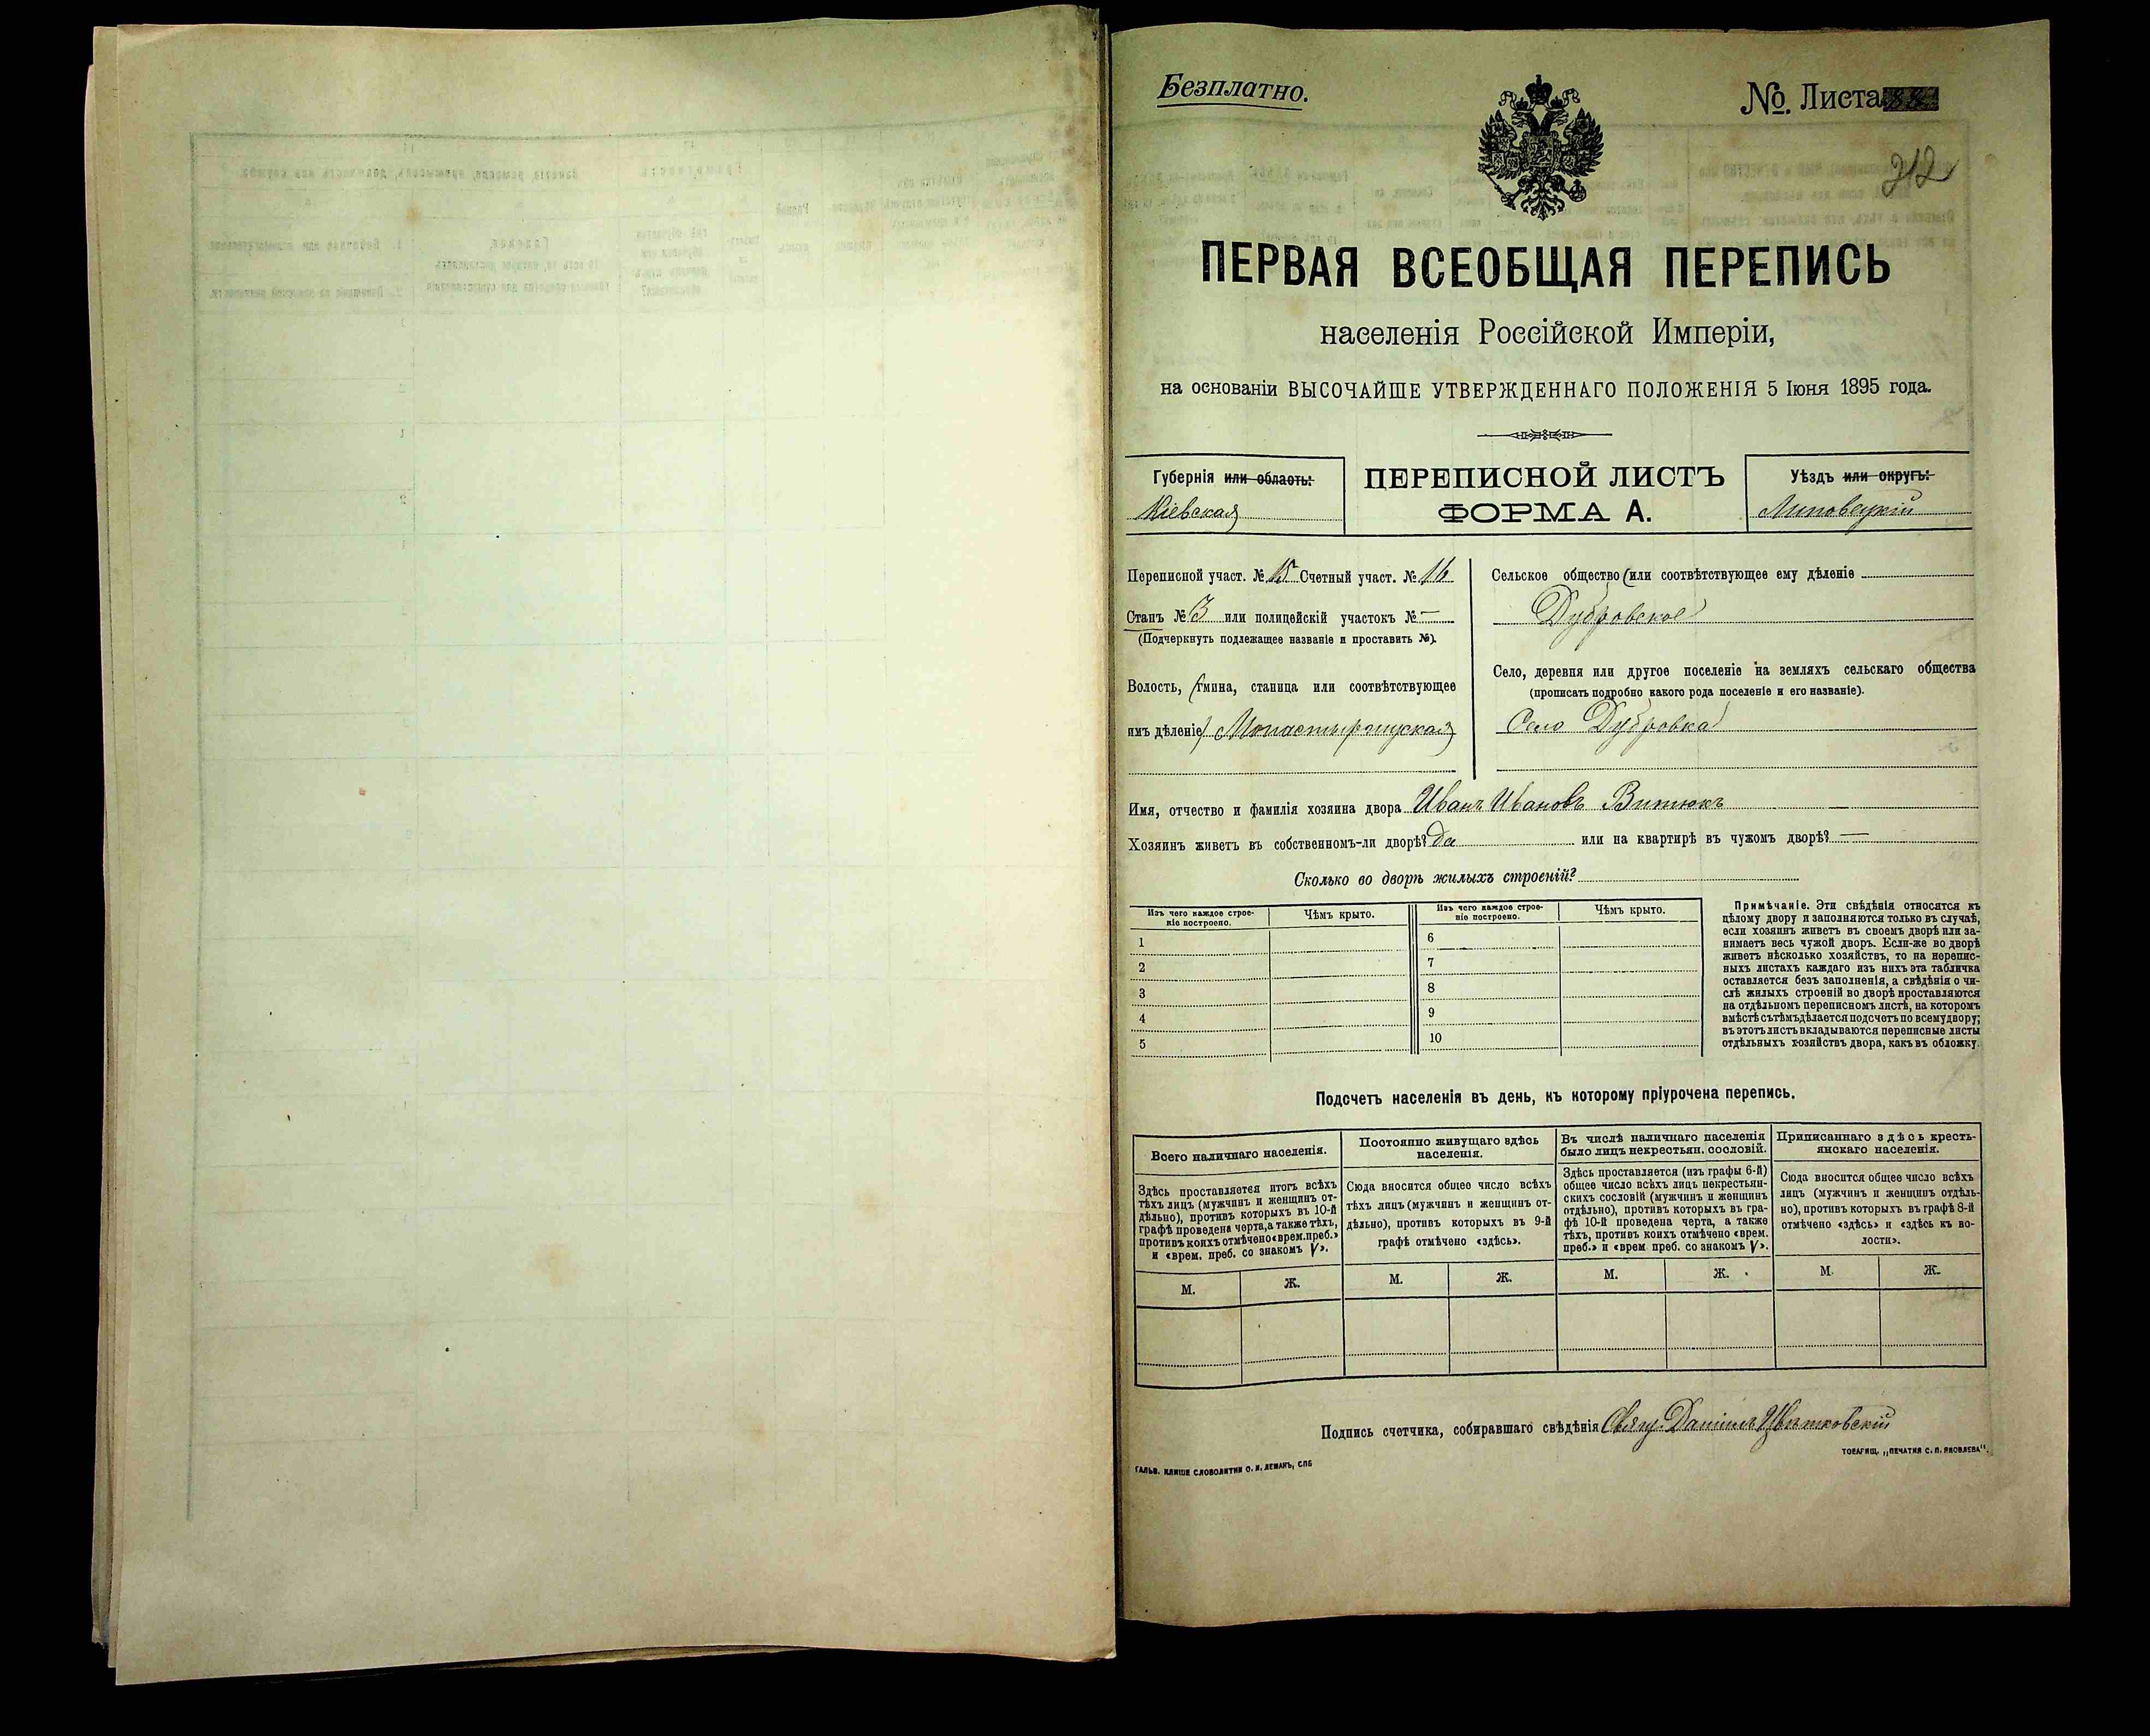 Безплатно.
№. Листа 88
212
ПЕРВАЯ ВСЕОБЩАЯ ПЕРЕПИСЬ
населенія Россійской Имперіи,
на основаніи ВЫСОЧАЙШЕ УТВЕРЖДЕННАГО ПОЛОЖЕНІЯ 5 Іюня 1895 года.
Губернія или область:
Кіевская
ПЕРЕПИСНОЙ ЛИСТЪ
ФОРМА А.
Уѣздъ или округъ:
Липовецкій
Переписной участ. № 15 Счетный участ. № 16
Станъ № 3 или полицейскій участокъ № —
(Подчеркнуть подлежащее названіе и проставить №).
Волость, (гмина, станица или соотвѣтствующее
имъ дѣленіе) Монастырищская
Сельское общество (или соотвѣтствующее ему дѣленіе
Дубровское
Село, деревня или другое поселеніе на земляхъ сельскаго общества
(прописать подробно какого рода поселеніе и его названіе).
Село Дубровка
Имя, отчество и фамилія хозяина двора Иванъ Ивановъ Витюкъ
Хозяинъ живетъ въ собственномъ-ли дворѣ? Да или на квартирѣ въ чужомъ дворѣ? —
Сколько во дворѣ жилыхъ строеній?
Изъ чего каждое строе-
ніе построено.
Чѣмъ крыто.
Изъ чего каждое строе-
ніе построено.
Чѣмъ крыто.
1
2
3
4
5
6
7
8
9
10
Примѣчаніе. Эти свѣдѣнія относятся къ
цѣлому двору и заполняются только въ случаѣ,
если хозяинъ живетъ въ своемъ дворѣ или за-
нимаетъ весь чужой дворъ. Если-же во дворѣ
живетъ нѣсколько хозяйствъ, то на перепис-
ныхъ листахъ каждаго изъ нихъ эта табличка
оставляется безъ заполненія, а свѣдѣнія о чи-
слѣ жилыхъ строеній во дворѣ проставляются
на отдѣльномъ переписномъ листѣ, на которомъ
вмѣстѣ съ тѣмъ дѣлается подсчетъ по всему двору;
въ этотъ листъ вкладываются переписные листы
отдѣльныхъ хозяйствъ двора, какъ въ обложку.
Подсчетъ населенія въ день, къ которому пріурочена перепись.
Всего наличнаго населенія.
Здѣсь проставляется итогъ всѣхъ
тѣхъ лицъ (мужчинъ и женщинъ от-
дѣльно), противъ которыхъ въ 10-й
графѣ проведена черта, а также тѣхъ,
противъ коихъ отмѣчено «врем. преб.»
и «врем. преб. со знакомъ V».
М.
Ж.
Постоянно живущаго здѣсь
населенія.
Сюда вносится общее число всѣхъ
тѣхъ лицъ (мужчинъ и женщинъ от-
дѣльно), противъ которыхъ въ 9-й
графѣ отмѣчено «здѣсь».
М.
Ж.
Въ числѣ наличнаго населенія
было лицъ некрестьян. сословій.
Здѣсь проставляется (изъ графы 6-й)
общее число всѣхъ лицъ некрестьян-
скихъ сословій (мужчинъ и женщинъ
отдѣльно), противъ которыхъ въ гра-
фѣ 10-й проведена черта, а также
тѣхъ, противъ коихъ отмѣчено «врем.
преб.» и «врем преб. со знакомъ V».
М.
Ж.
Приписаннаго здѣсь кресть-
янскаго населенія.
Сюда вносится общее число всѣхъ
лицъ (мужчинъ и женщинъ отдѣль-
но), противъ которыхъ въ графѣ 8-й
отмѣчено «здѣсь» и «здѣсь къ во-
лости».
М.
Ж.
Подпись счетчика, собиравшаго свѣдѣнія Свящ. Даніилъ Цвѣтковскій
ГАЛЬВ. КЛИШЕ СЛОВОЛИТНИ О. И. ЛЕМАНЪ, СПБ
ТОВАРИЩ. „ПЕЧАТНЯ С. П. ЯКОВЛЕВА".